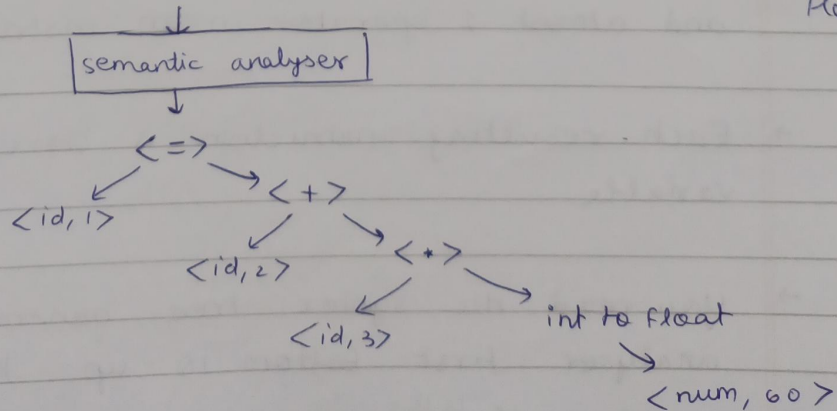 semantic analyser
<=>
<id, 1>
<+>
<id, 2>
<*>
<id, 3>
int to float
<num, 60>